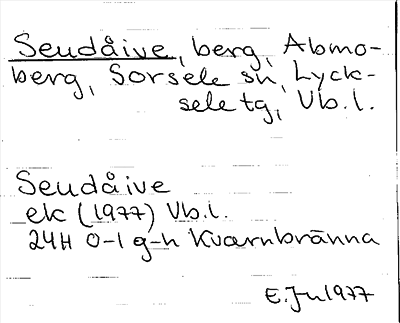 Seudåive, berg, Abmo-
berg, Sorsele sn, Lyck-
sele tg, Vb.l.
Seudåive
ek (1977) Vb.l.
24H 0-1 g-h Kvarnbränna
E.Ju 1977